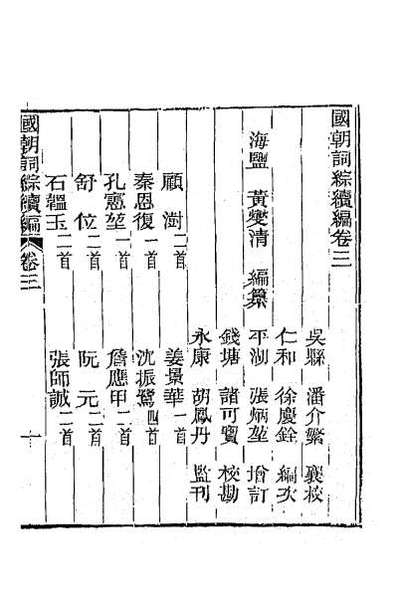 國朝詞綜續編卷三
吳縣 潘介繁 襄校
仁和 徐慶銓 編次
海鹽 黃燮清 編纂
平湖 張炳堃 增訂
錢塘 諸可寶 校勘
永康 胡鳳丹 監刊
顧澍二首 姜景華一首
秦恩復一首 沈振鷺四首
孔憲堃一首 詹應甲二首
舒位二首 阮元二首
石韞玉二首 張師誠二首
國朝詞綜續編 卷三 一